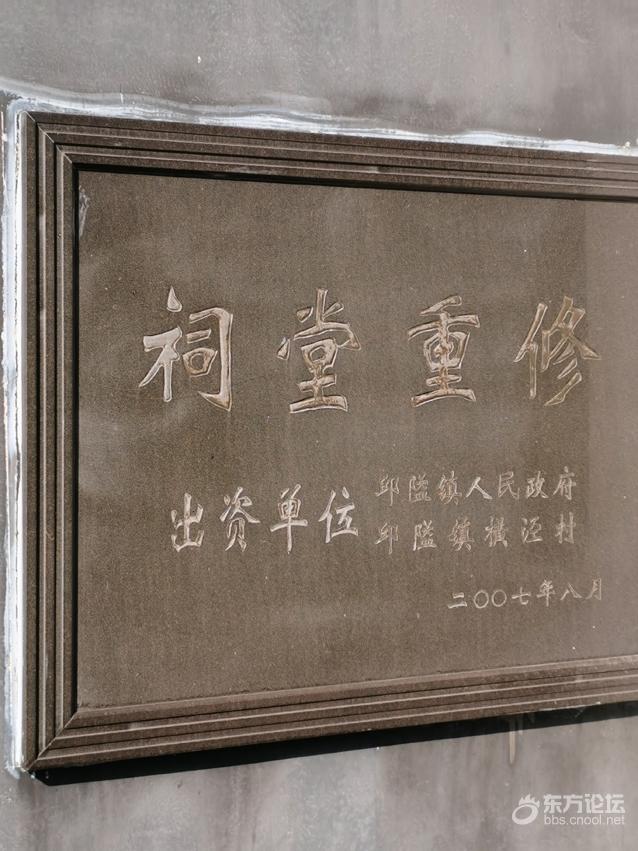 祠堂重修
出资单位
邱隘镇人民政府
邱隘镇横泾村
二〇〇七年八月
东方论坛
bbs.cnool.net